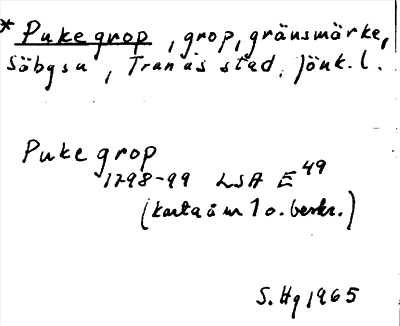 * Puke grop, grop, gränsmärke,
Säbysn, Tranås stad, Jönk. l.
Puke grop
1798-99 LSA E 49
(karta å nr 1 o. beskr.)
S. Hg 1965